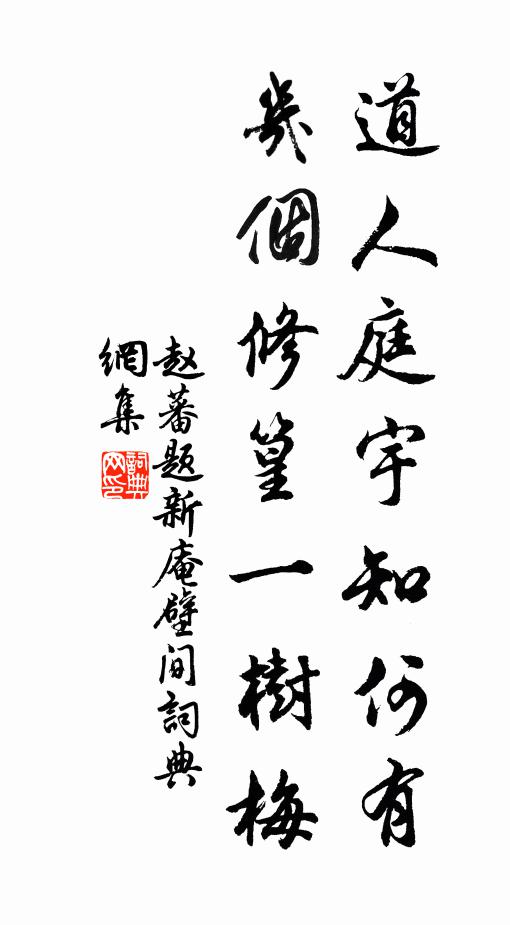 道人庭宇知何有
幾個修篁一樹梅
赵蕃题新庵壁间詞典
網集
詞典網印